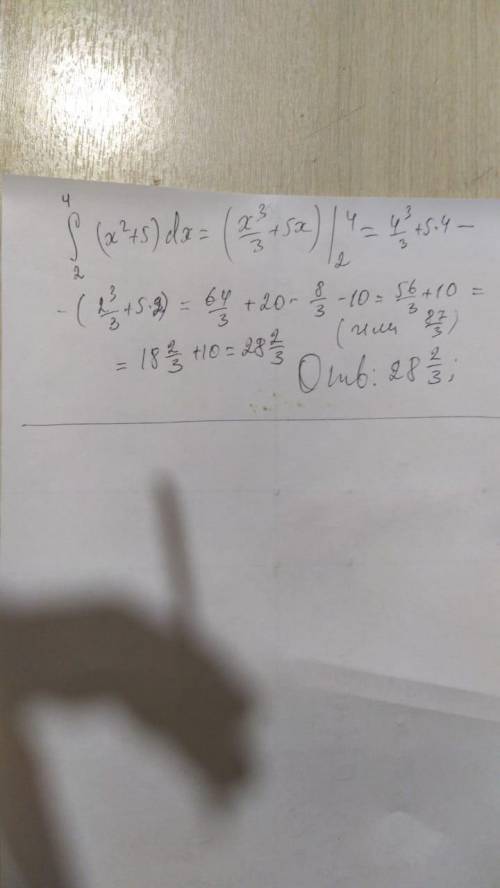 ∫₂⁴ (x²+5)dx = (x³/3 + 5x) |₂⁴ = 4³/3 + 5·4 −
− (2³/3 + 5·2) = 64/3 + 20 − 8/3 − 10 = 56/3 + 10 =
(или 87/3)
= 18 2/3 + 10 = 28 2/3
Отв: 28 2/3;